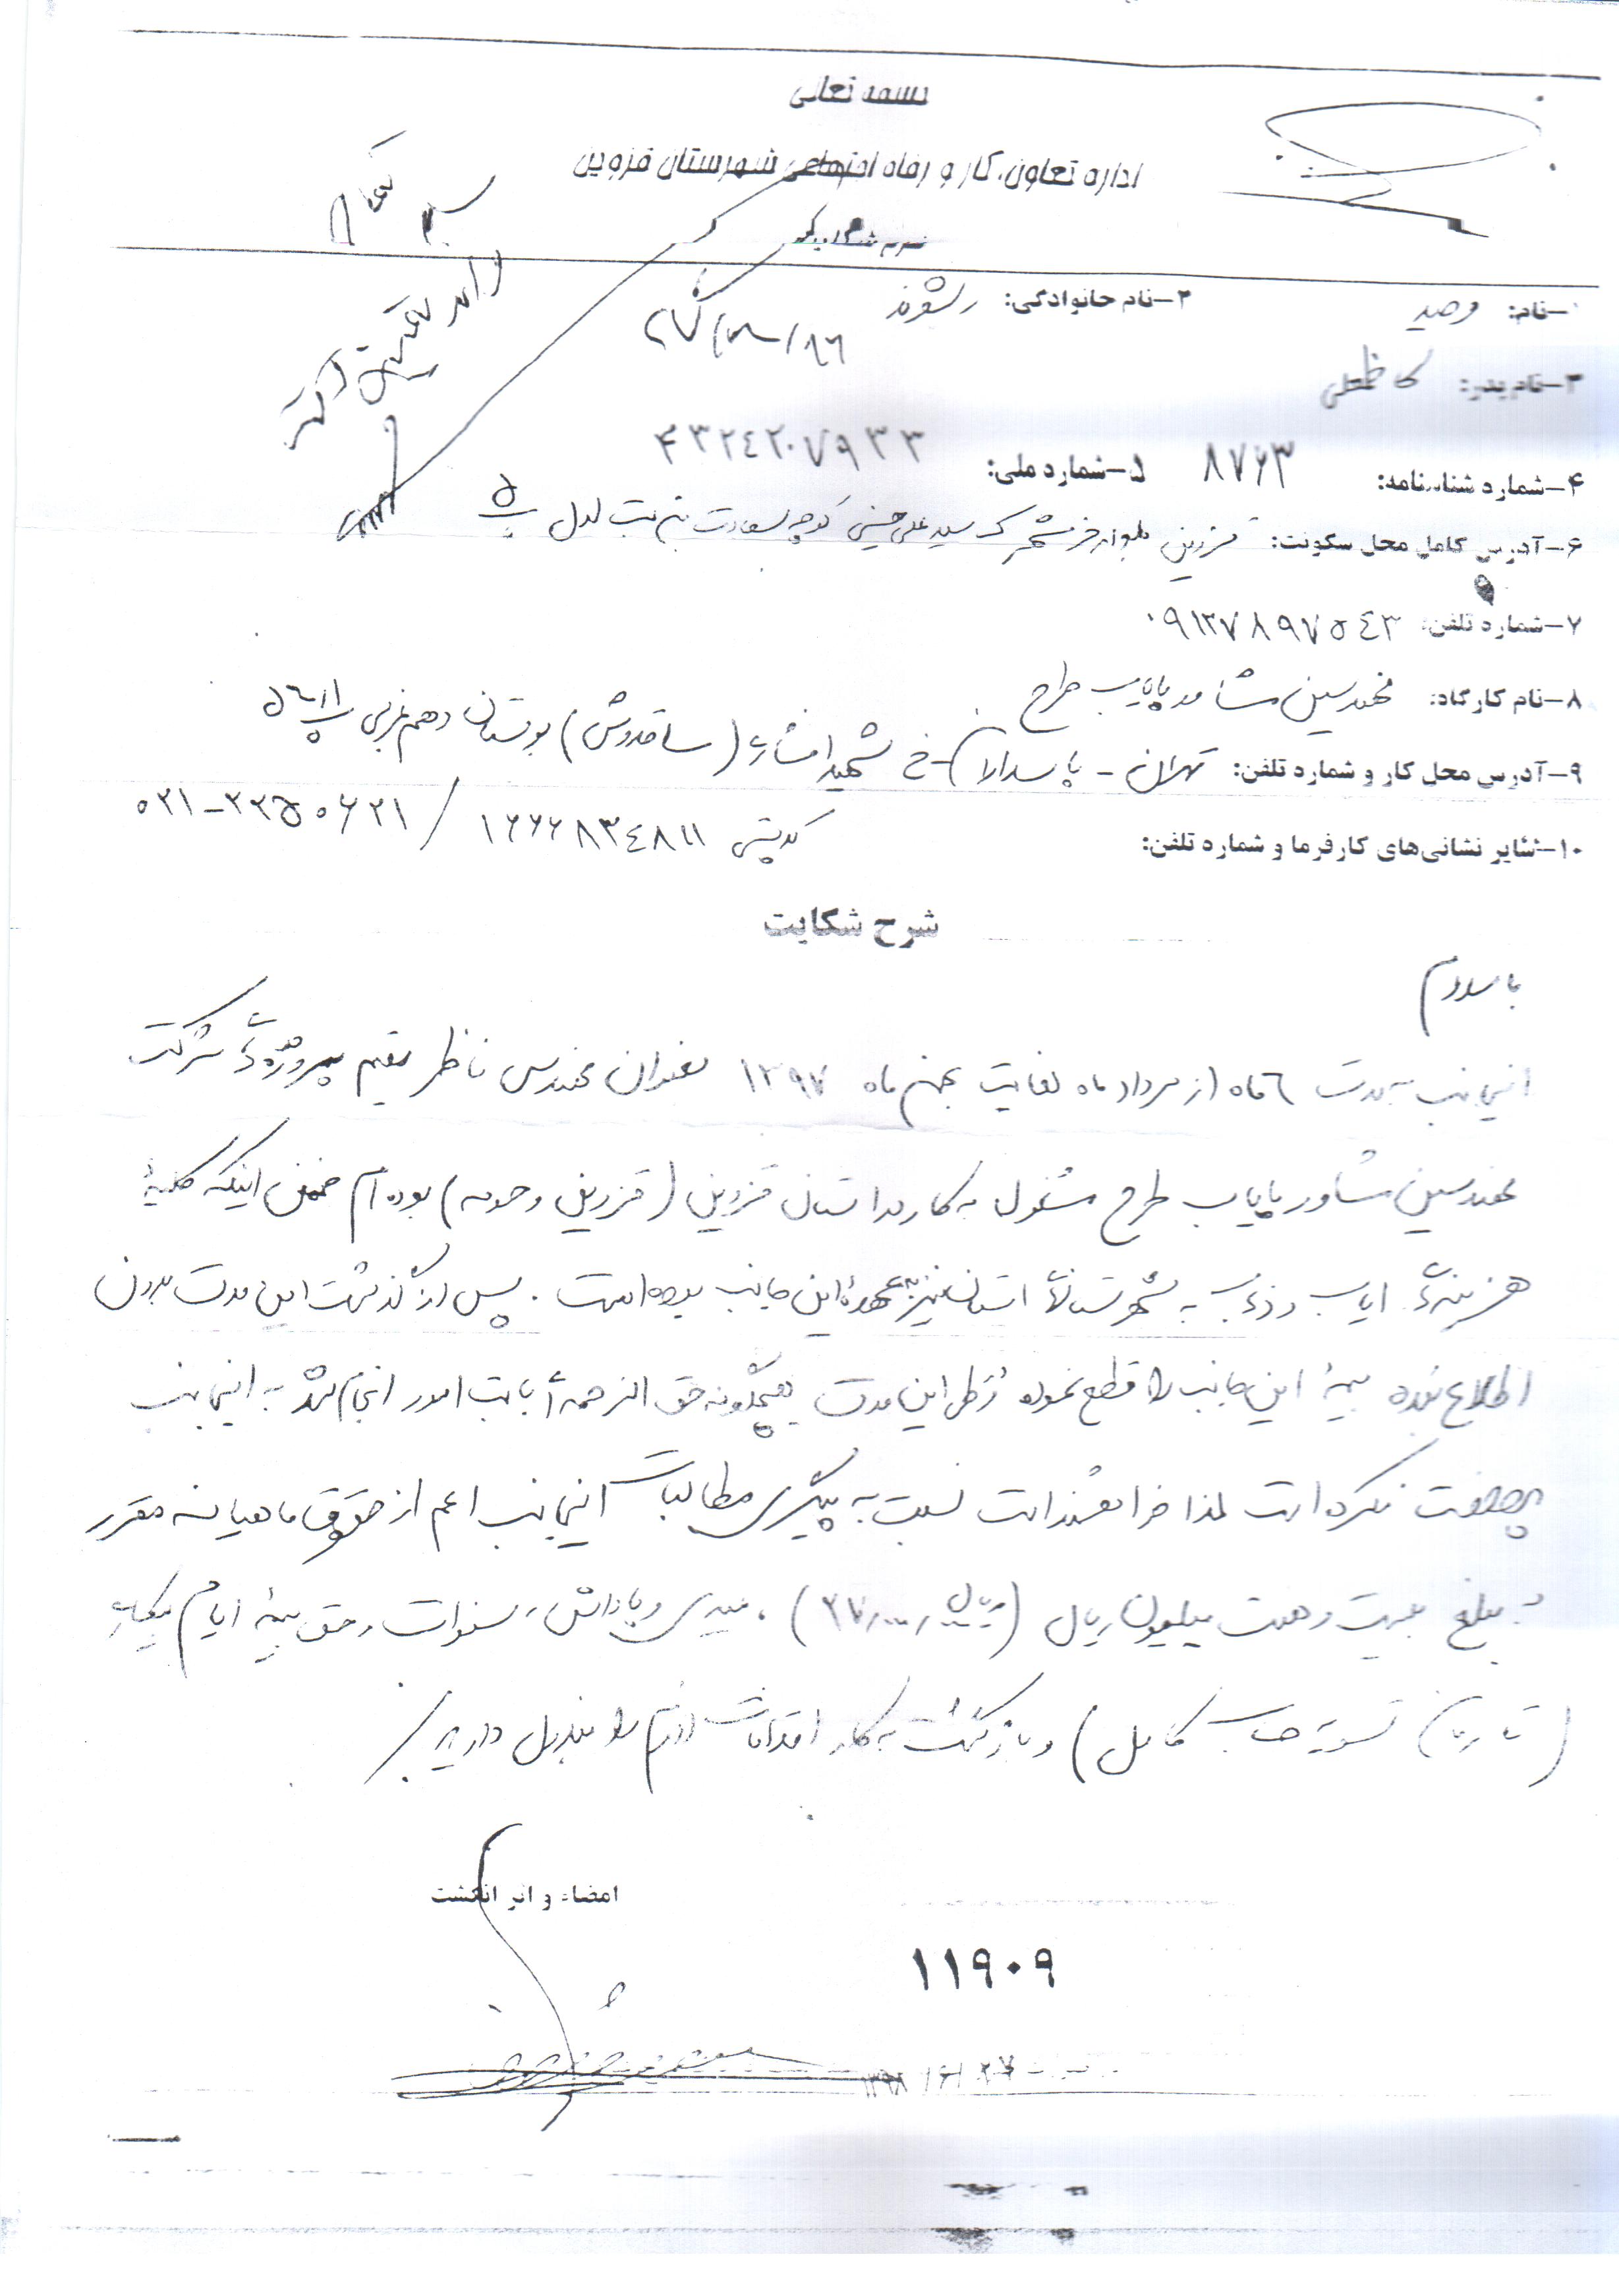 بسمه تعالی
اداره تعاون، کار و رفاه اجتماعی شهرستان قزوین
۱-نام: وحید ۲-نام خانوادگی: رشوند
۳-نام پدر: کاظمعلی
۴-شماره شناسنامه: ۸۷۶۳ ۵-شماره ملی: ۴۳۲۴۲۰۷۹۳۳
۶-آدرس کامل محل سکونت: قزوین بلوار خرمشهر ک سید علی حسینی کوچه سعادت بن بست اول پ ۵
۷-شماره تلفن: ۰۹۱۲۷۸۹۷۵۴۳
۸-نام کارگاه: مهندسین مشاور پایاب طرح
۹-آدرس محل کار و شماره تلفن: تهران - پاسداران - خ شهید افشاری (ساقدوش) بوستان دهم غربی پلاک
کدپستی ۱۶۶۶۸۳۴۸۱۱ / ۰۲۱-۲۲۵۰۶۲۱
۱۰-سایر نشانی‌های کارفرما و شماره تلفن:
شرح شکایت
با سلام
اینجانب بمدت ۶ ماه از مرداد ماه لغایت بهمن ماه ۱۳۹۷ بعنوان مهندس ناظر مقیم پروژه‌های شرکت
مهندسین مشاور پایاب طرح مشغول به کار در استان قزوین (قزوین و حومه) بوده‌ام ضمن اینکه کلیهٔ
هزینه‌های ایاب و ذهاب به شهرستانهای استان نیز به عهدهٔ این جانب بوده است. پس از گذشت این مدت بدون
اطلاع بنده بیمهٔ این جانب را قطع نموده و طی این مدت هیچگونه حق الزحمه‌ای بابت امور انجام شده به اینجانب
پرداخت نکرده است لذا خواهشمند است نسبت به پیگیری مطالبات اینجانب اعم از حقوق ماهیانه مقرر
به مبلغ بیست و هفت میلیون ریال (۲۷,۰۰۰,۰۰۰ ریال)، عیدی و پاداش، سنوات، حق بیمهٔ ایام بیکاری
(تا زمان تسویه حساب کامل) و بازگشت به کار اقدامات لازم را مبذول دارید/.
امضاء و اثر انگشت
۱۱۹۰۹
۱۳۹۸/۶/۲۷